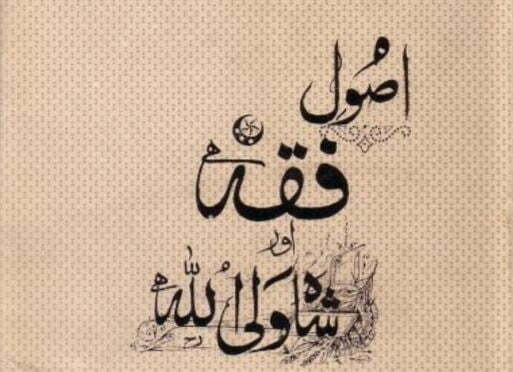 اصُول
فقہ
اور
شاہ وَلی اُللہ ؒ